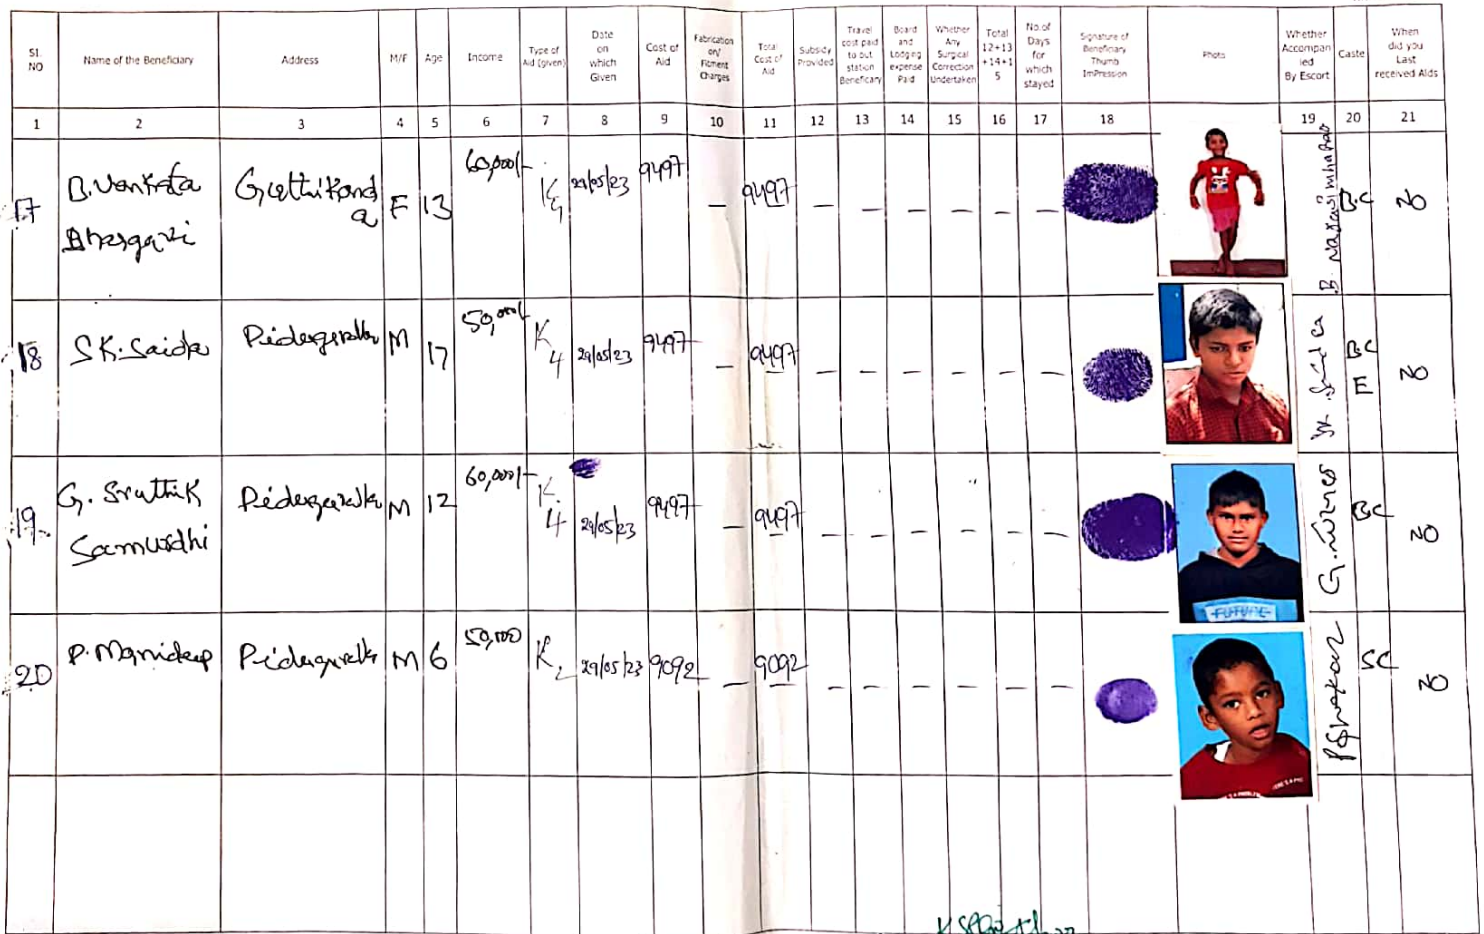 Sl. NO | Name of the Beneficiary | Address | M/F | Age | Income | Type of Aid (given) | Date on which Given | Cost of Aid | Fabrication on/ Fitment Charges | Total Cost of Aid | Subsidy Provided | Travel cost paid to out station Beneficiary | Board and Lodging expense Paid | Whether Any Surgical Correction Undertaken | Total 12+13 +14+1 5 | No.of Days for which stayed | Signature of Beneficiary Thumb ImPression | Photo | Whether Accompan ied By Escort | Caste | When did you Last received Aids
1 2 3 4 5 6 7 8 9 10 11 12 13 14 15 16 17 18 19 20 21
17 B. Venkata Bhargavi Guthikonda F 13 60,000/- 29/05/23 9497 — 9497 — — — — — — B. Narasimharao B.C NO
18 SK. Saida M 17 50,000/- K4 29/05/23 9497 — 9497 — — — — — — SK. Saida BC E NO
19 G. Sruthik Samurdhi M 12 60,000/- K4 29/05/23 9497 — 9497 — — — — — — FUTURE G. BC NO
20 P. Manideep M 6 50,000 K2 29/05/23 9092 — 9092 — — — — — — SC NO